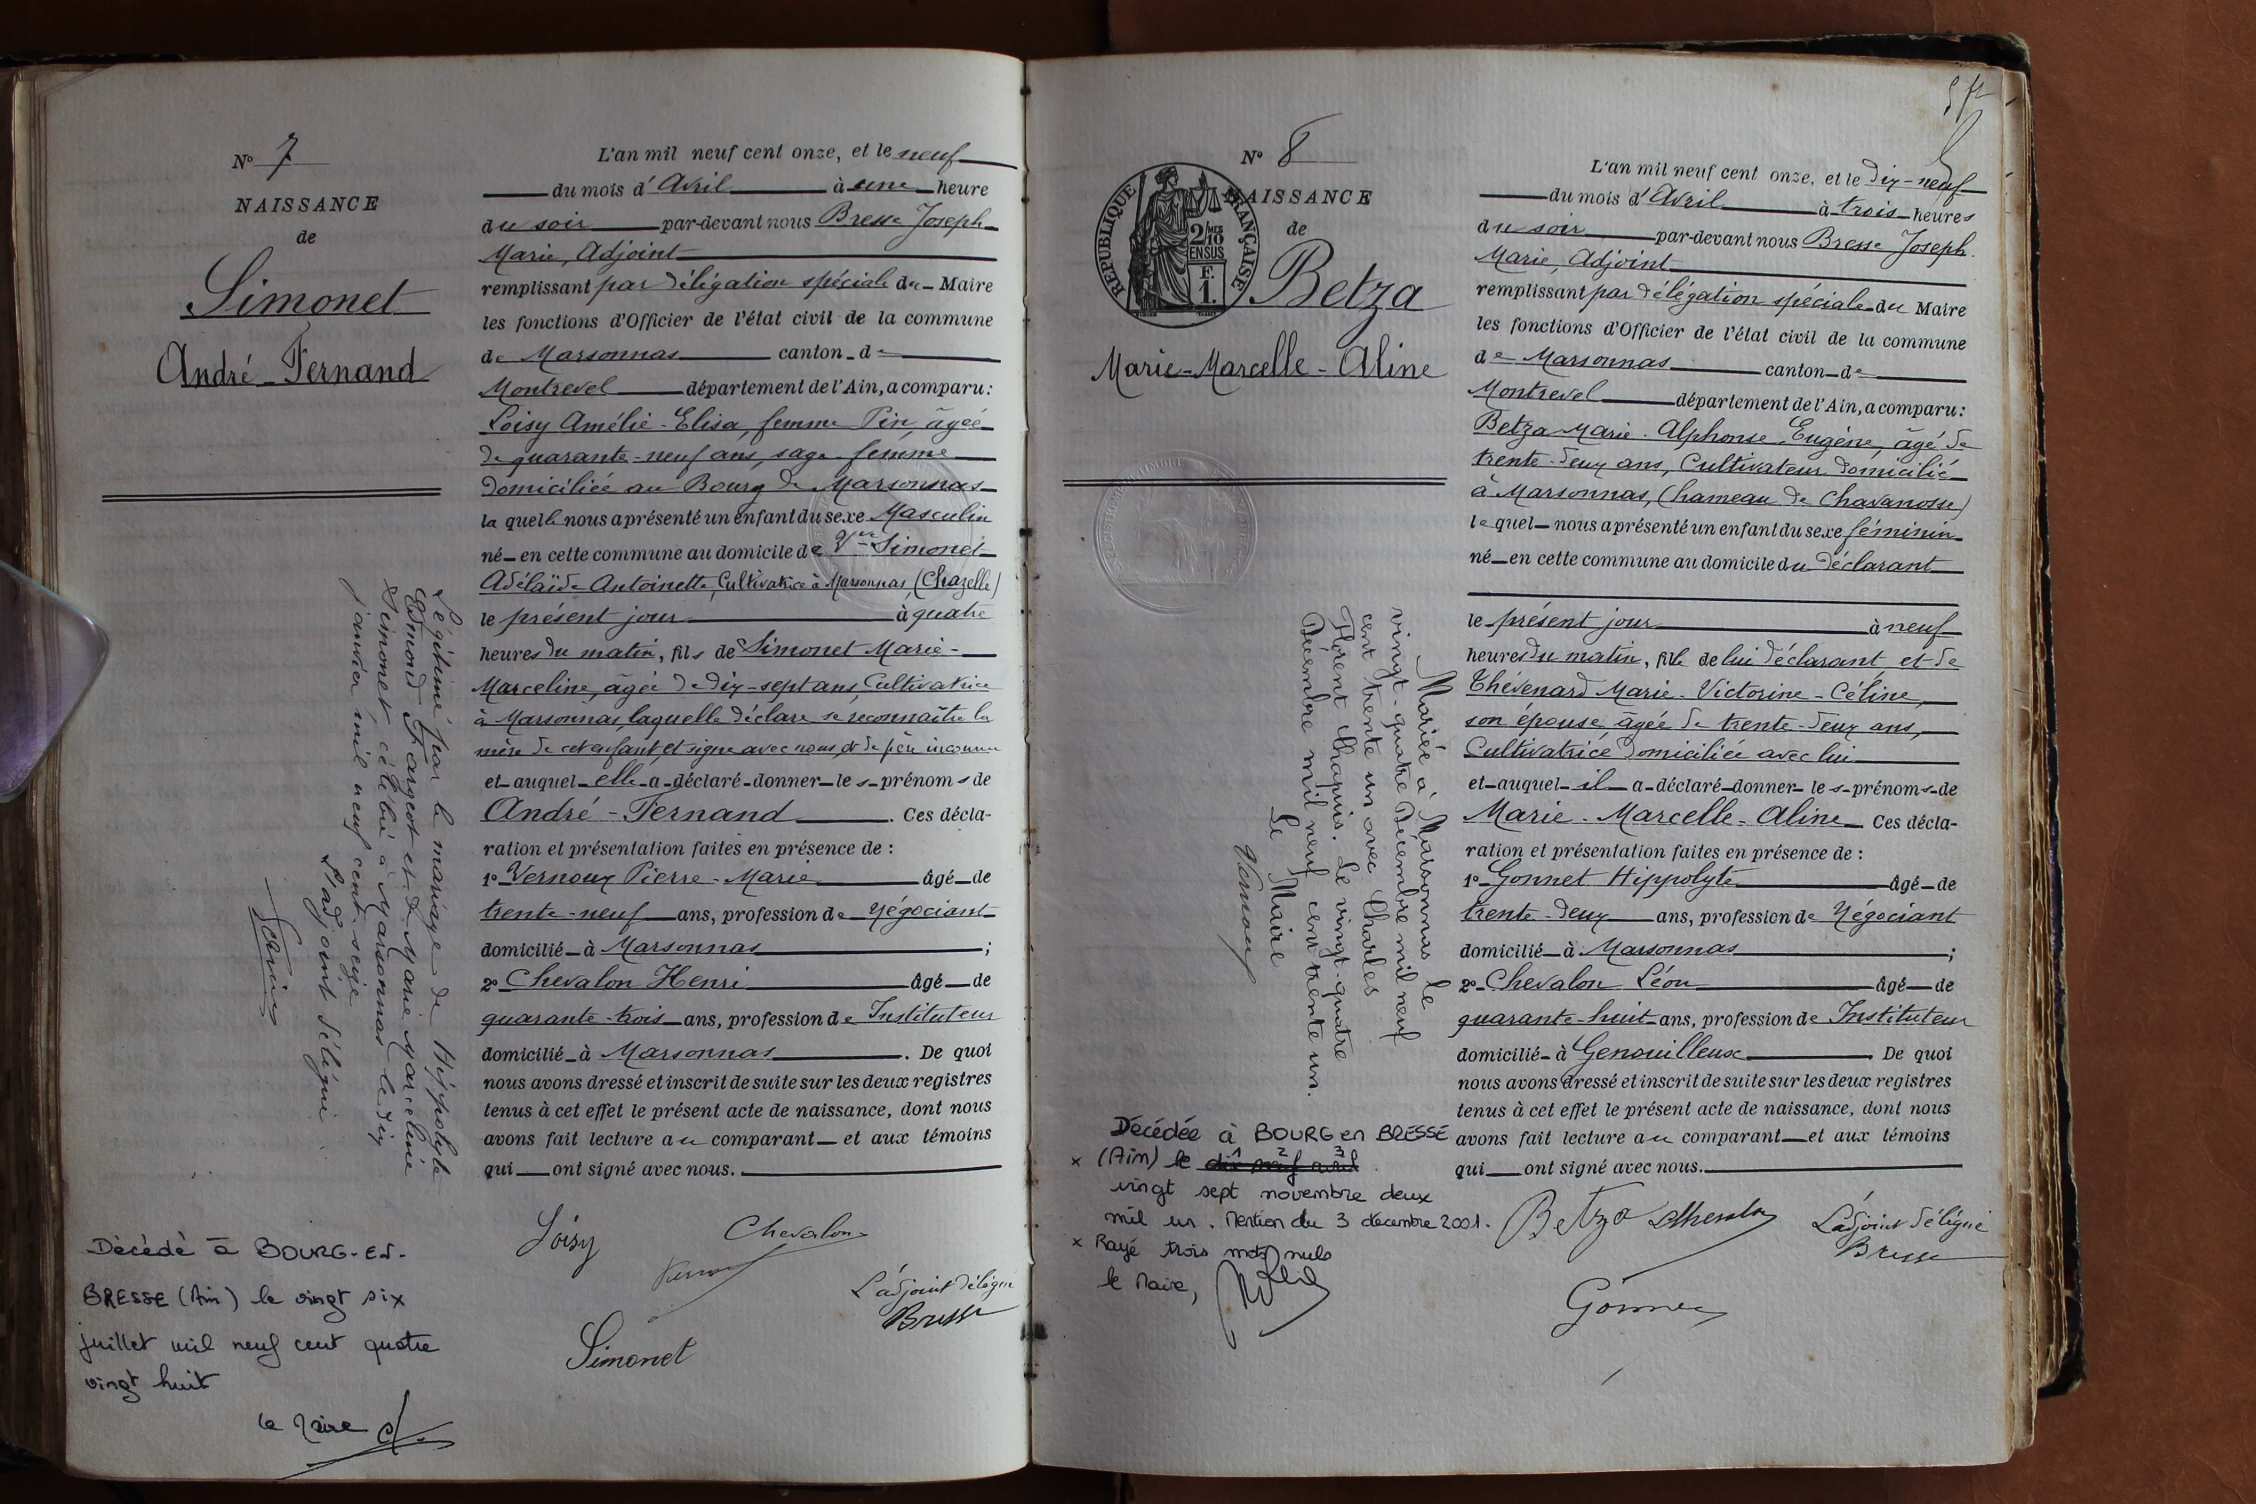 N° 7
NAISSANCE
de
Simonet
André-Fernand
Légitimé par le mariage de Hippolyte
Edmond Fargeot et de Marie Marceline
Simonet célébré à Marsonnas le dix
janvier mil neuf cent seize
L'adjoint délégué
Décédé à BOURG-EN-
BRESSE (Ain) le vingt six
juillet mil neuf cent quatre
vingt huit
le Maire
L'an mil neuf cent onze, et le neuf
du mois d'Avril à une heure
du soir par-devant nous Bresse Joseph
Marie, Adjoint
remplissant par délégation spéciale du Maire
les fonctions d'Officier de l'état civil de la commune
de Marsonnas canton de
Montrevel département de l'Ain, a comparu:
Loisy Amélie-Elisa, femme Pin, âgée
de quarante-neuf ans, sage-femme
domiciliée au Bourg de Marsonnas
la quelle nous a présenté un enfant du sexe Masculin
né en cette commune au domicile de Vve Simonet
Adélaïde Antoinette, Cultivatrice à Marsonnas (Chazelle)
le présent jour à quatre
heures du matin, fils de Simonet Marie-
Marceline, âgée de dix-sept ans, Cultivatrice
à Marsonnas, laquelle déclare se reconnaître la
mère de cet enfant, et signe avec nous, et de père inconnu
et auquel elle a déclaré donner les prénoms de
André-Fernand. Ces décla-
ration et présentation faites en présence de :
1° Vernoux Pierre-Marie âgé de
trente-neuf ans, profession de Négociant
domicilié à Marsonnas ;
2° Chevalon Henri âgé de
quarante-trois ans, profession de Instituteur
domicilié à Marsonnas. De quoi
nous avons dressé et inscrit de suite sur les deux registres
tenus à cet effet le présent acte de naissance, dont nous
avons fait lecture au comparant et aux témoins
qui ont signé avec nous.
Loisy Chevalon
L'adjoint délégué
Bresse
Simonet
N° 8
NAISSANCE
de
RÉPUBLIQUE FRANÇAISE
2/10 MES
EN SUS
F.
1.
Betza
Marie-Marcelle-Aline
Mariée à Marsonnas le
vingt-quatre Décembre mil neuf
cent trente un avec Charles
Florent Chapuis. Le vingt-quatre
Décembre mil neuf cent trente un.
Le Maire
Vernoux
Décédée à BOURG en BRESSE
x (Ain) le dix neuf avril
vingt sept novembre deux
mil un. Mention du 3 décembre 2001.
x Rayé trois mots nuls
le Maire,
L'an mil neuf cent onze, et le dix-neuf
du mois d'Avril à trois heures
du soir par-devant nous Bresse Joseph
Marie, Adjoint
remplissant par délégation spéciale du Maire
les fonctions d'Officier de l'état civil de la commune
de Marsonnas canton de
Montrevel département de l'Ain, a comparu:
Betza Marie-Alphonse Eugène, âgé de
trente-deux ans, Cultivateur domicilié
à Marsonnas, (hameau de Chavanosse)
lequel nous a présenté un enfant du sexe féminin
né en cette commune au domicile du déclarant
le présent jour à neuf
heures du matin, fille de lui déclarant et de
Thévenard Marie-Victorine-Céline,
son épouse âgée de trente-deux ans,
Cultivatrice domiciliée avec lui
et auquel il a déclaré donner les prénoms de
Marie-Marcelle-Aline Ces décla-
ration et présentation faites en présence de :
1° Gonnet Hippolyte âgé de
trente-deux ans, profession de Négociant
domicilié à Marsonnas ;
2° Chevalon Léon âgé de
quarante-huit ans, profession de Instituteur
domicilié à Genouilleux. De quoi
nous avons dressé et inscrit de suite sur les deux registres
tenus à cet effet le présent acte de naissance, dont nous
avons fait lecture au comparant et aux témoins
qui ont signé avec nous.
Betza LChevalon L'adjoint délégué
Bresse
Gonnet